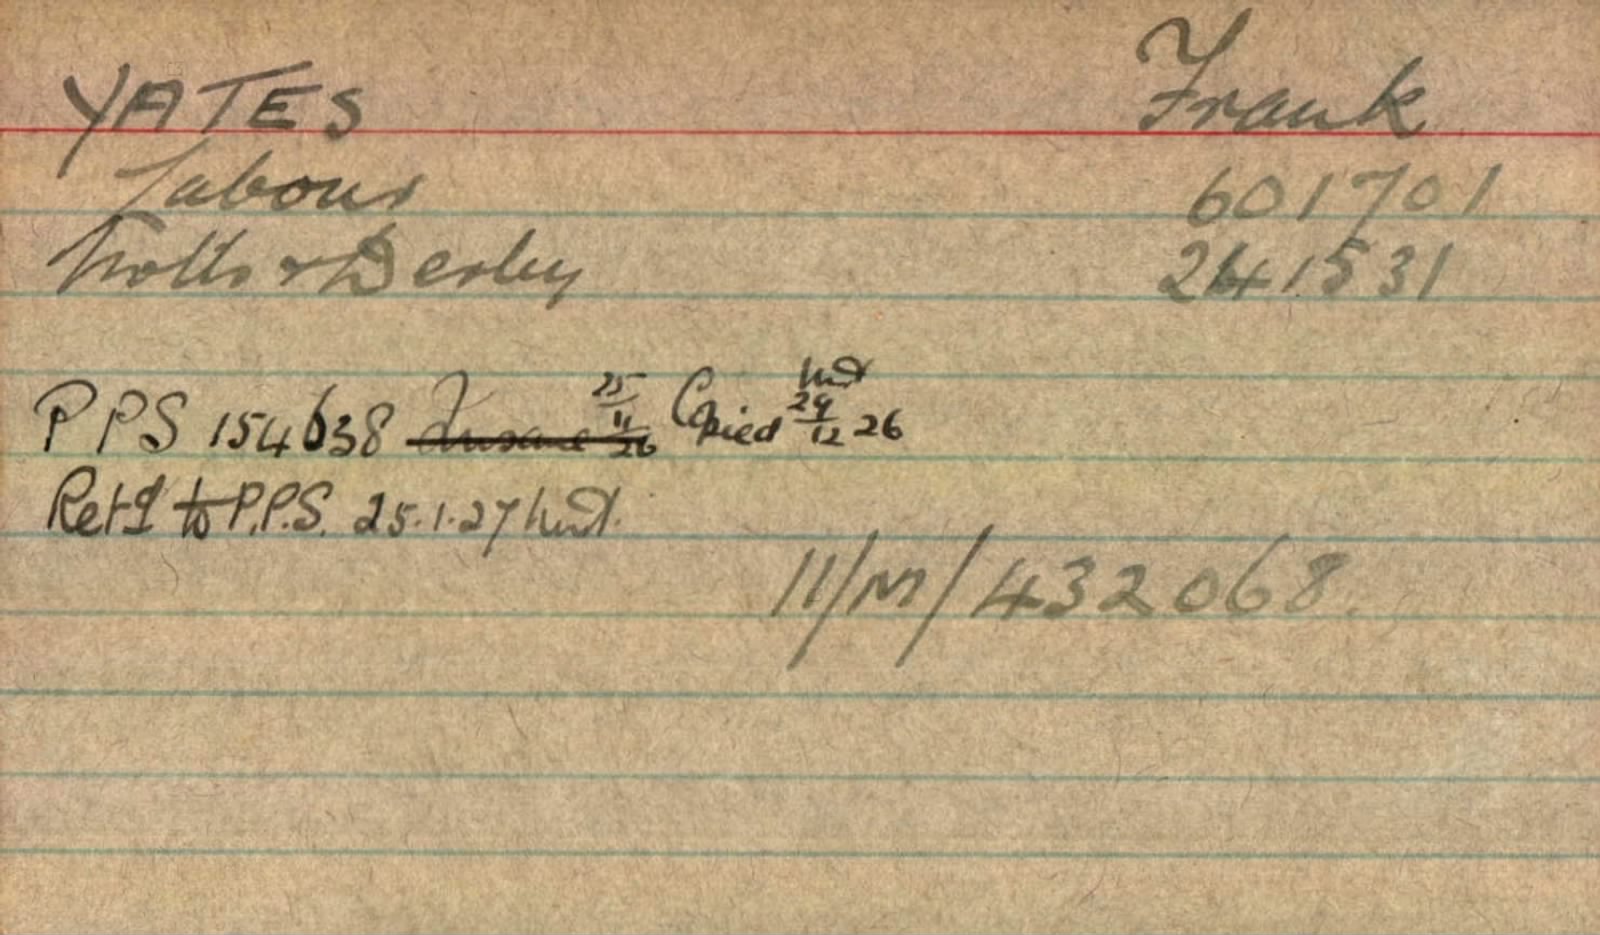 YATES Frank
Labour 601701
Notts & Derby 241531
PPS 154638 25/11/26 Copied 29/12 26
Retd to P.P.S. 25.1.27
11/M/432068.